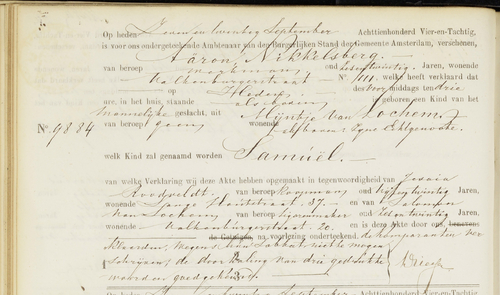 Op heden Zeven en twintig September Achttienhonderd Vier-en-Tachtig,
is voor ons ondergeteekende Ambtenaar van den Burgerlijken Stand der Gemeente Amsterdam, verschenen,
Aäron Nikkelsberg. —
van beroep Werkman, oud zesentwintig Jaren, wonende
Valkenburgerstraat N°. 111. welke heeft verklaard dat
op Heden des voor middags ten drie
ure, in het huis, staande als boven, geboren is een Kind van het
Mannelijke geslacht, uit Mijntje van Lochem,
N°. 9884
van beroep geen wonende zijne Echtgenoote.
welk Kind zal genaamd worden Samuël. —
van welke Verklaring wij deze Akte hebben opgemaakt in tegenwoordigheid van Jesaia
Roodveldt, van beroep Koopman, oud vijfentwintig Jaren,
wonende Lange Houtstraat 37. — en van Salomon
van Lochem, van beroep Sigarenmaker oud zesentwintig Jaren,
wonende Valkenburgerstraat 20. en is deze Akte door ons, benevens
de Getuigen, na voorlezing onderteekend. de comparanten ver
klaarden, wegens hun Sabbat niet te mogen
schrijven, de doorhaling van drie gedrukte
woorden goedgekeurd.
Op heden September Achttienhonderd Vier-en-Tachtig,